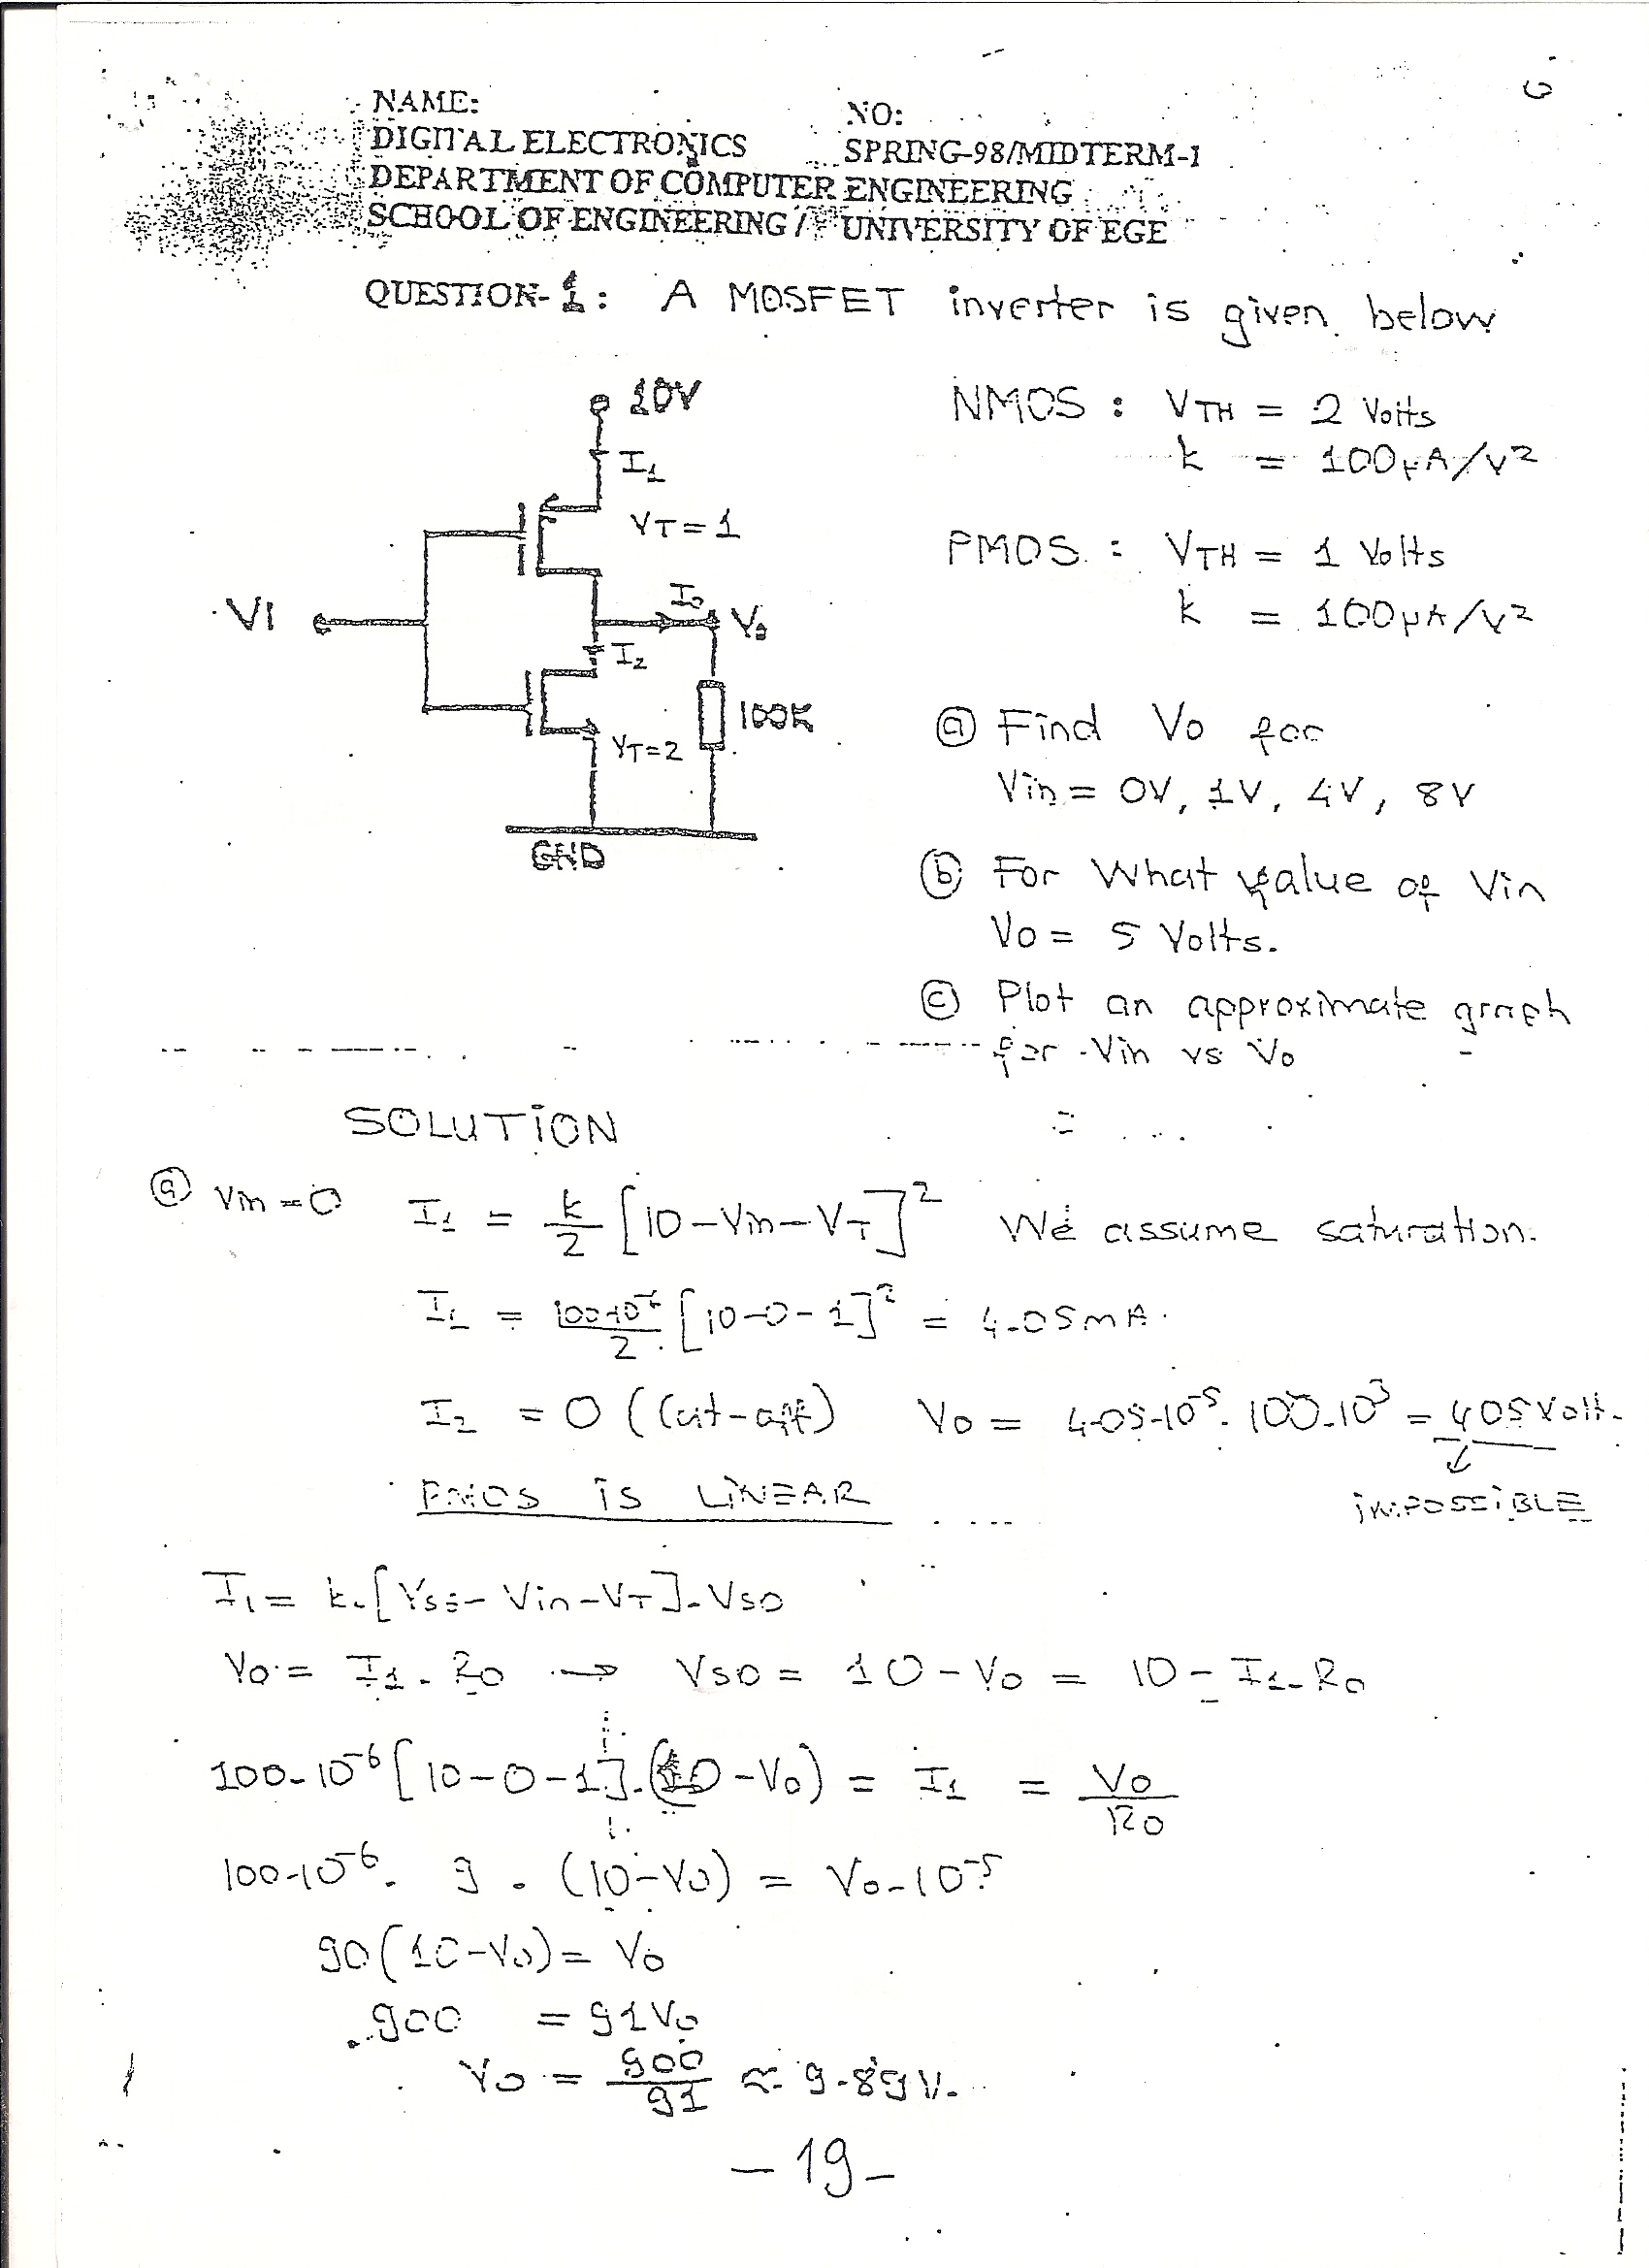 NAME: NO:
DIGITAL ELECTRONICS SPRING-98/MIDTERM-1
DEPARTMENT OF COMPUTER ENGINEERING
SCHOOL OF ENGINEERING / UNIVERSITY OF EGE
QUESTION-1: A MOSFET inverter is given below
10V
I1
VT=1
VI
I0
Vo
I2
100K
VT=2
GND
NMOS : VTH = 2 Volts
k = 100μA/V²
PMOS : VTH = 1 Volts
k = 100μA/V²
ⓐ Find Vo for
Vin = 0V, 1V, 4V, 8V
ⓑ For What value of Vin
Vo = 5 Volts.
ⓒ Plot an approximate graph
for Vin vs Vo
SOLUTİON
ⓐ Vin = 0 I1 = k/2 [10-Vin-VT]² We assume saturation.
I1 = 100.10⁻⁶/2 . [10-0-1]² = 4.05mA.
I2 = 0 (Cut-off) Vo = 4.05.10⁻³. 100.10³ = 405 Volt.
PMOS İS LİNEAR İMPOSSİBLE
I1 = k.[VSS-Vin-VT].VSD
Vo = I1.Ro → VSD = 10-Vo = 10-I1.Ro
100.10⁻⁶[10-0-1].(10-Vo) = I1 = Vo/Ro
100.10⁻⁶. 9 . (10-Vo) = Vo.10⁻⁵
90(10-Vo) = Vo
900 = 91Vo
Vo = 900/91 ≈ 9.89V.
-19-